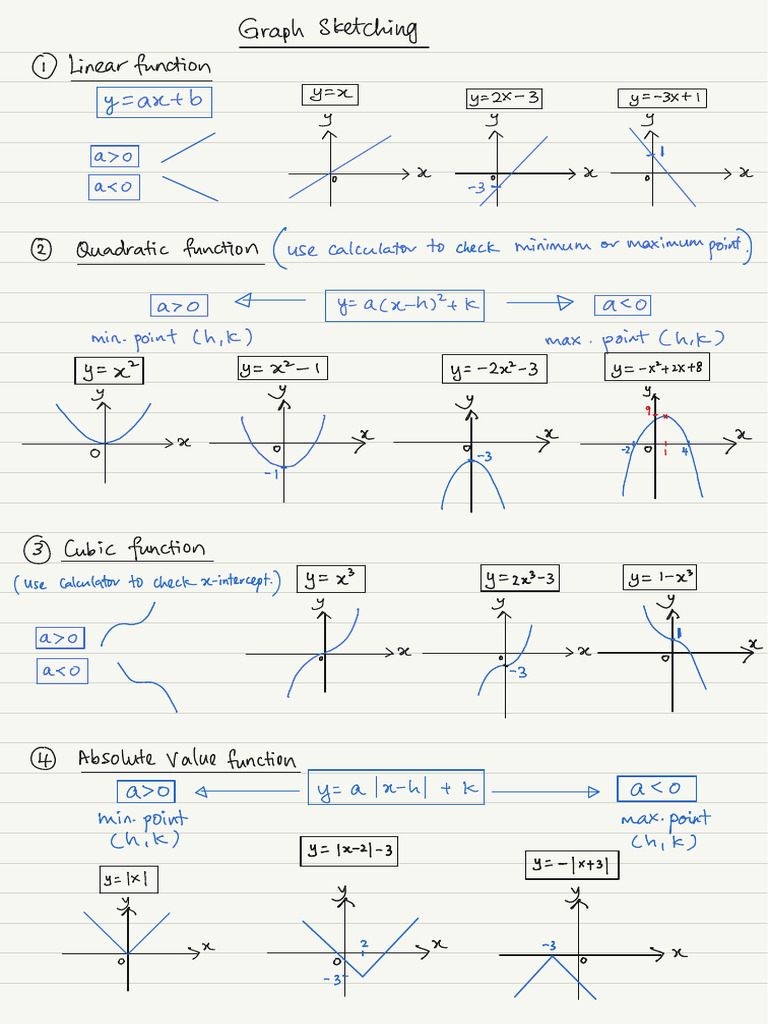 Graph Sketching
① Linear function
y=ax+b
y=x
y=2x-3
y=-3x+1
a>0
a<0
y
x
0
y
x
0
-3
y
x
0
1
② Quadratic function (use calculator to check minimum or maximum point.)
a>0
y=a(x-h)²+k
a<0
min. point (h,k)
max. point (h,k)
y=x²
y=x²-1
y=-2x²-3
y=-x²+2x+8
y
x
0
y
x
0
-1
y
x
0
-3
y
x
0
9
-2
1
4
③ Cubic function
(use calculator to check x-intercept.)
y=x³
y=2x³-3
y=1-x³
a>0
a<0
y
x
0
y
x
0
-3
y
x
0
1
④ Absolute Value function
a>0
y=a|x-h|+k
a<0
min. point
(h,k)
max. point
(h,k)
y=|x|
y=|x-2|-3
y=-|x+3|
y
x
0
y
x
0
2
-3
y
x
0
-3